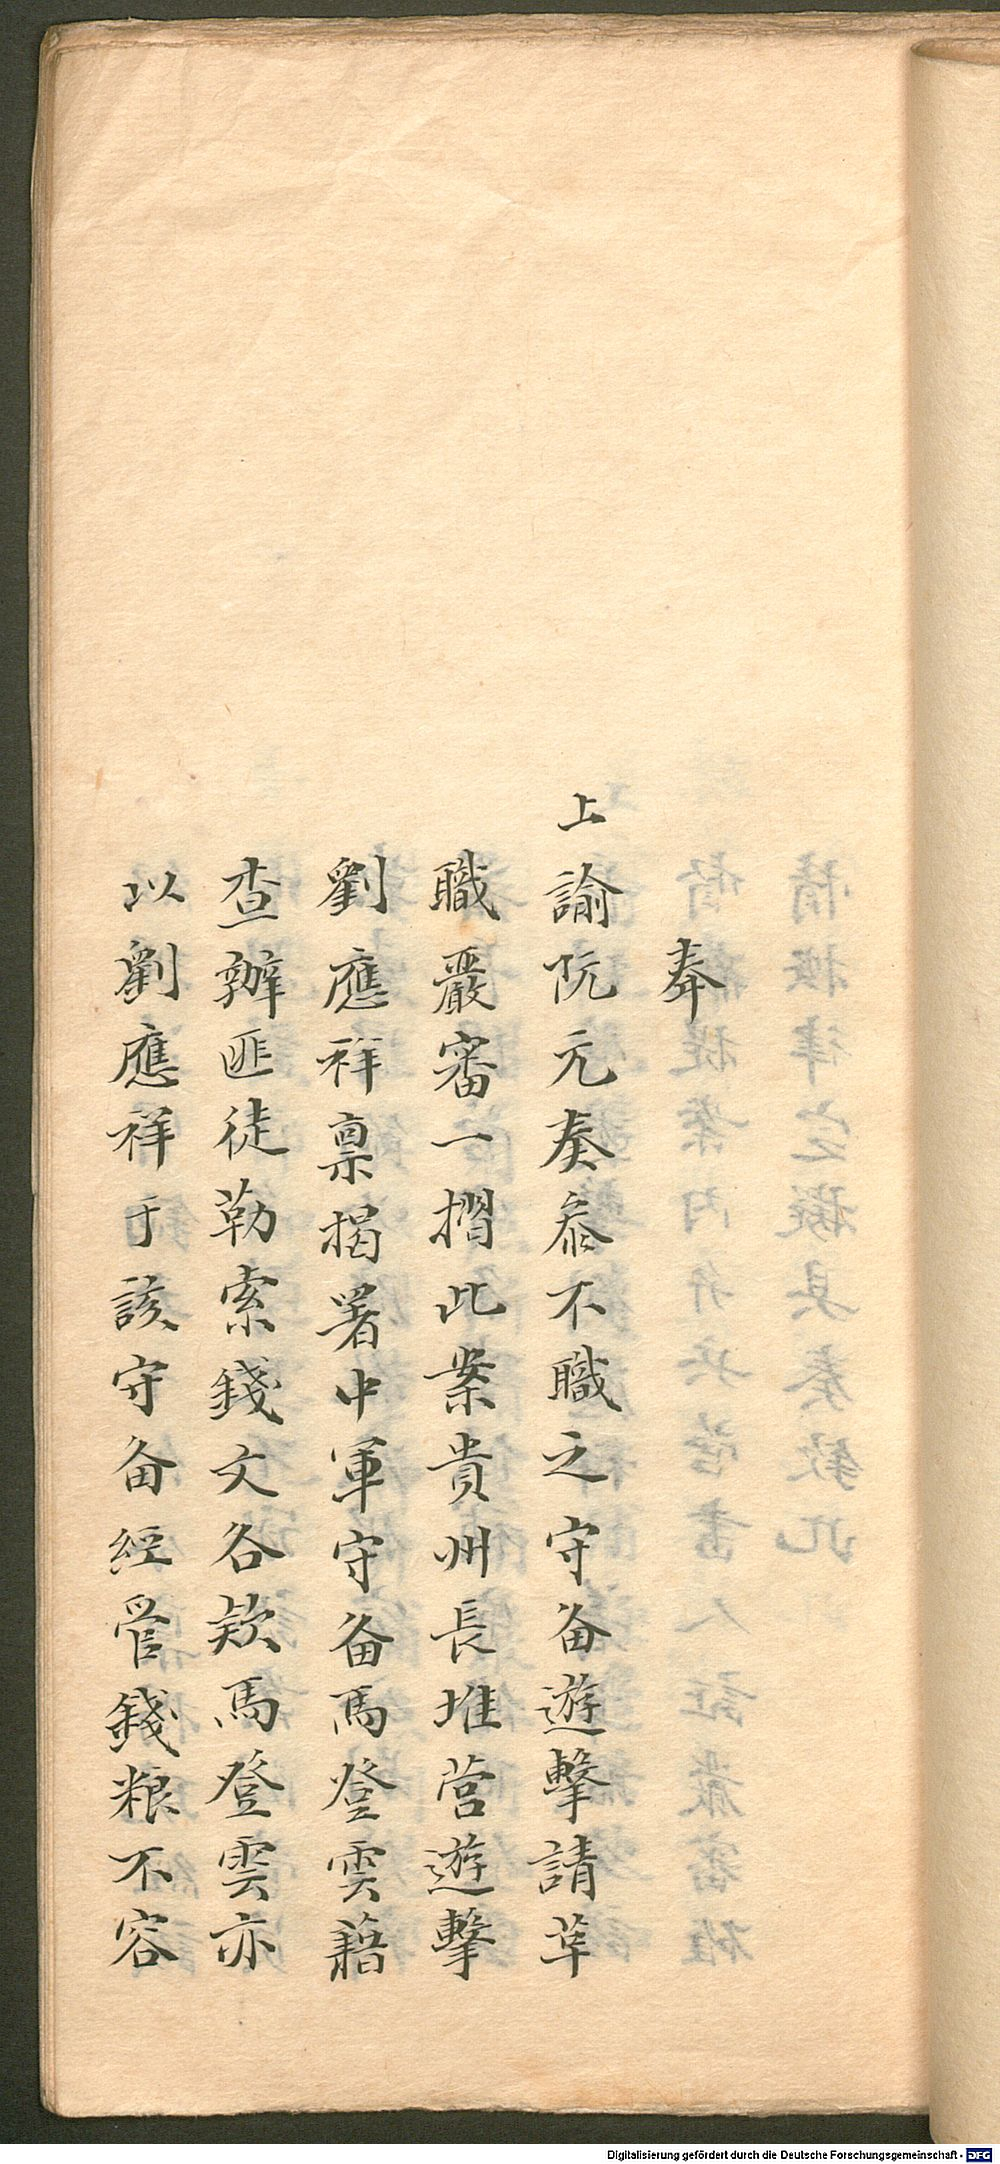 奉
上諭阮元奏叅不職之守备遊擊請革
職嚴審一摺此案貴州長堆营遊擊
劉應祥禀揭署中軍守备馬登雲藉
查辦匪徒勒索錢文各欵馬登雲亦
以劉應祥于該守备经管錢粮不容
Digitalisierung gefördert durch die Deutsche Forschungsgemeinschaft - DFG